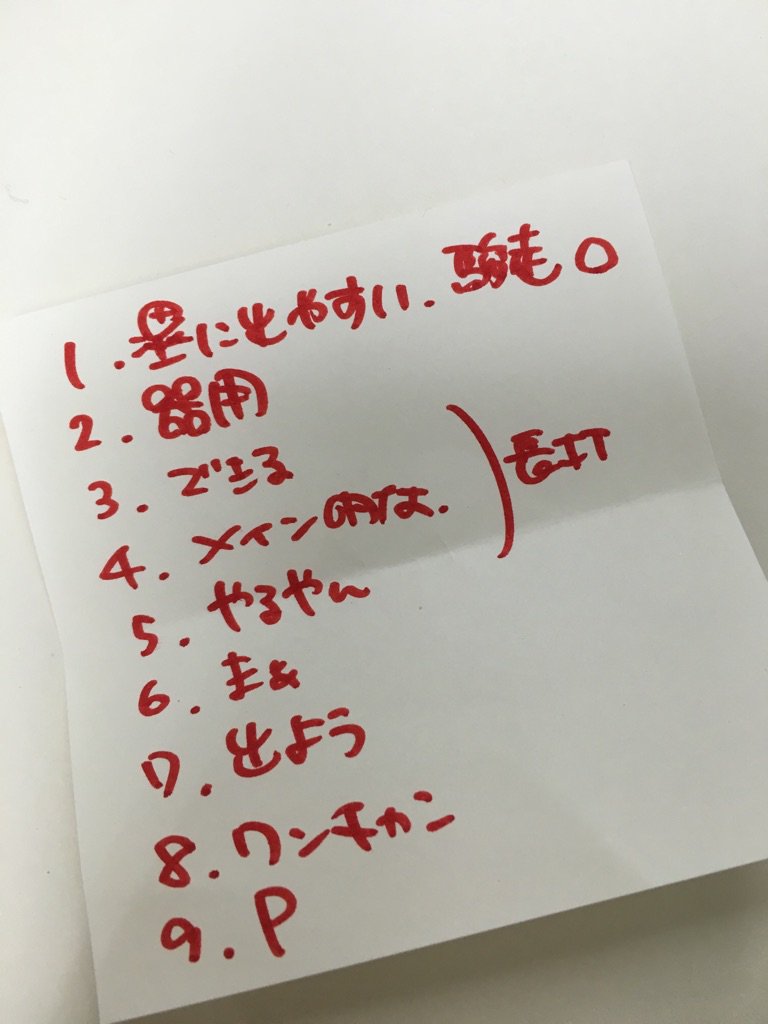 1. 塁に出やすい. 走○
2. 器用
3. できる
4. メイン的な. ) 長打
5. やるやん
6. まあ
7. 出よう
8. ワンチャン
9. P